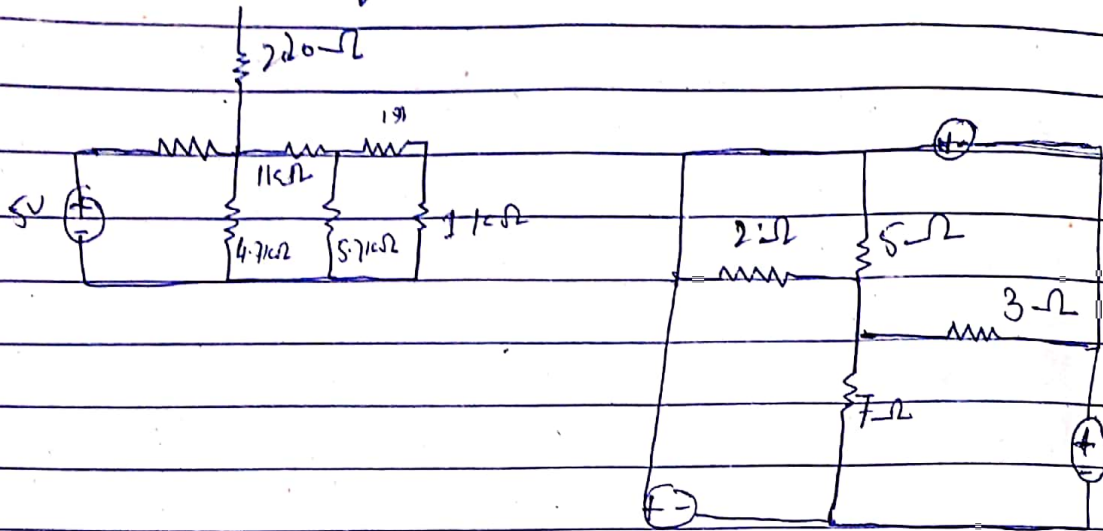 220Ω
1Ω
1kΩ
5V
4.7kΩ
5.7kΩ
1kΩ
+
-
2Ω
5Ω
3Ω
7Ω
+ -
+
-